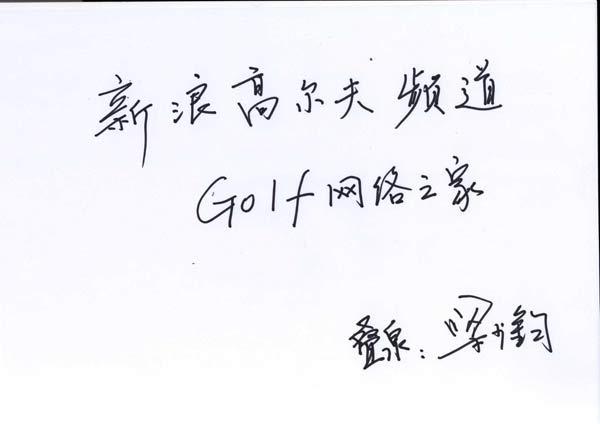 新浪高尔夫频道
Golf网络之家
叠泉：梁少钧